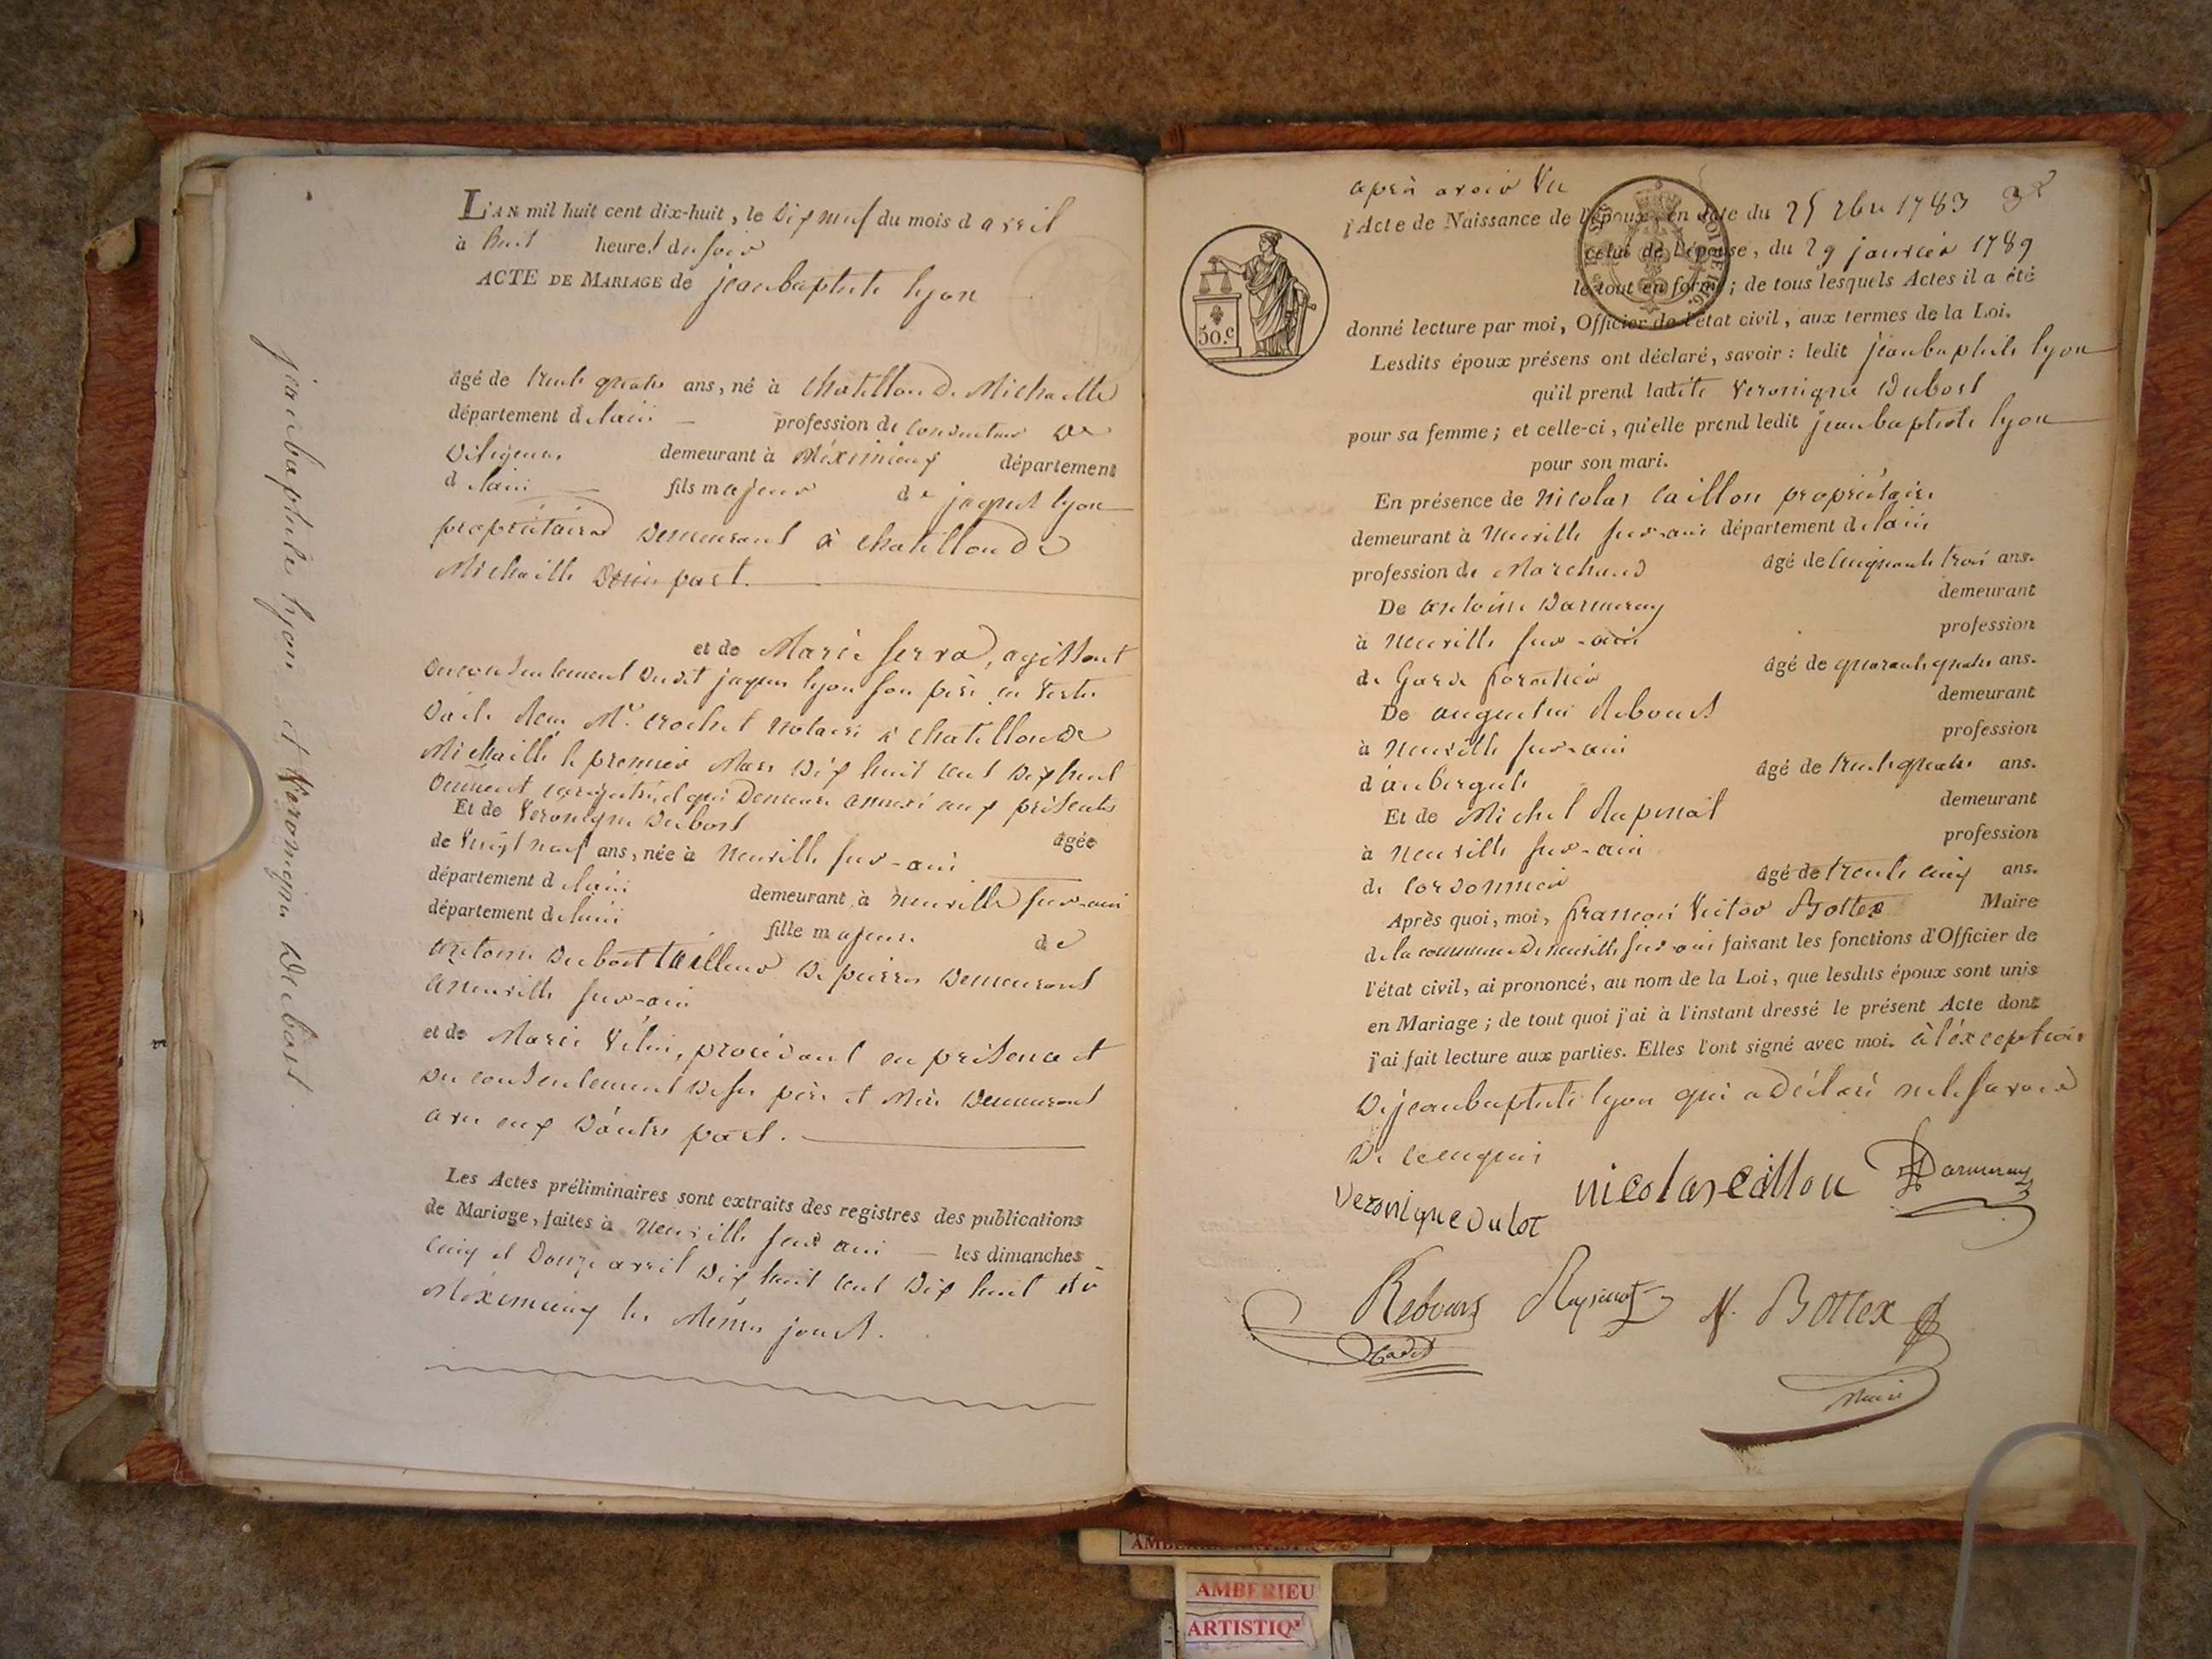 jeanbaptiste lyon et Veronique Dubost.
L'AN mil huit cent dix-huit, le dix neuf du mois d avril
à huit heures du soir
ACTE DE MARIAGE de jeanbaptiste lyon
âgé de trente quatre ans, né à Chatillon de Michaille
département de lain — profession de conducteur de
diligences demeurant à Méximieux département
de lain — fils majeur de jaques lyon
propriétaire demeurant à chatillon de
Michaille d'une part.
et de Marie serra, agissant
du consentement dudit jaques lyon son père en vertu
d'acte reçu Me. crochet notaire à chatillon de
Michaille le premier Mars dix huit cent dix huit
duement enregistré, et qui demeure annexé aux présents
Et de Veronique Dubost âgée
de vingt neuf ans, née à neuville sur-ain
département de lain demeurant à neuville sur-ain
département de lain fille majeure de
antoine Dubost tailleur de pierres demeurant
a neuville sur-ain
et de Marie Vélin, procédant en présence et
du consentement de ses père et Mère demeurant
avec eux d'autre part.
Les Actes préliminaires sont extraits des registres des publications
de Mariage, faites à neuville sur ain — les dimanches
cinq et douze avril dix huit cent dix huit et à
Méximieux les Mêmes jours.
après avoir vu
l'Acte de Naissance de l'époux, en date du 25 xbre 1783 32
celui de l'épouse, du 29 janvier 1789
le tout en forme; de tous lesquels Actes il a été
50.c
donné lecture par moi, Officier de l'état civil, aux termes de la Loi.
Lesdits époux présens ont déclaré, savoir: ledit jeanbaptiste lyon
qu'il prend ladite Veronique Dubost
pour sa femme; et celle-ci, qu'elle prend ledit jeanbaptiste lyon
pour son mari.
En présence de Nicolas caillon propriétaire
demeurant à neuville sur-ain département de lain
profession de Marchand âgé de cinquante trois ans.
De antoine Darmeray demeurant
à neuville sur-ain profession
de Garde forestier âgé de quarante quatre ans.
De augustin Rebours demeurant
à neuville sur-ain profession
d'aubergiste âgé de trente quatre ans.
Et de Michel Rapinat demeurant
à neuville sur-ain profession
de cordonnier âgé de trente cinq ans.
Après quoi, moi, françois Victor Bottex Maire
de la commune de neuville sur ain faisant les fonctions d'Officier de
l'état civil, ai prononcé, au nom de la Loi, que lesdits époux sont unis
en Mariage; de tout quoi j'ai à l'instant dressé le présent Acte dont
j'ai fait lecture aux parties. Elles l'ont signé avec moi. à l'éxception
de jeanbaptiste lyon qui a déclaré ne le savoir
de ce enquis
veronique dubot nicolas caillon Darmeray
Rebours Rapinat V. Bottex
Cadet
Maire
AMBERIEU
ARTISTIQ